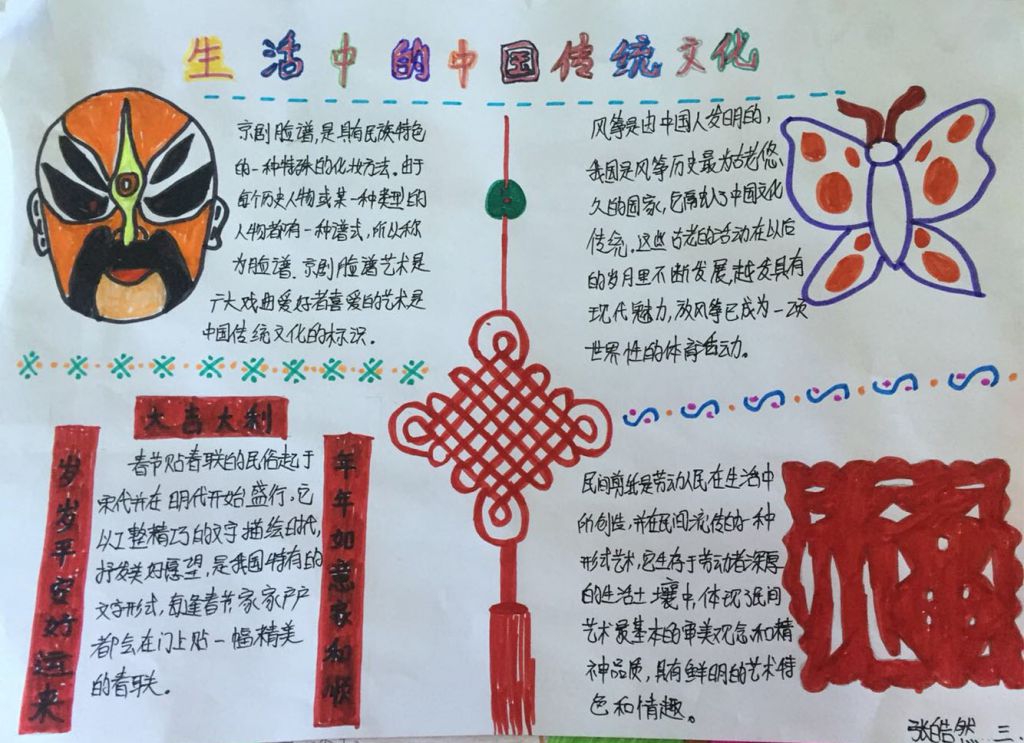 生活中的中国传统文化
京剧脸谱,是具有民族特色
的一种特殊的化妆方法。由于
每个历史人物或某一种类型的
人物都有一种谱式,所以称
为脸谱.京剧脸谱艺术是
广大戏曲爱好者喜爱的艺术是
中国传统文化的标识.
风筝是由中国人发明的,
我国是风筝历史最为古老悠
久的国家,它融入了中国文化
传统.这些古老的活动在以后
的岁月里不断发展,越发具有
现代魅力,放风筝已成为一项
世界性的体育活动。
大吉大利
岁岁平安好运来
年年如意家和顺
春节贴春联的民俗起于
宋代并在明代开始盛行.它
以工整精巧的文字描绘时代,
抒发美好愿望,是我国特有的
文字形式,每逢春节,家家户户
都会在门上贴一幅精美
的春联。
民间剪纸是劳动人民在生活中
所创造,并在民间流传的一种
形式艺术,它生存于劳动者深厚
的生活土壤中,体现了民间
艺术最基本的审美观念和精
神品质,具有鲜明的艺术特
色和情趣。
福
张皓然 三.